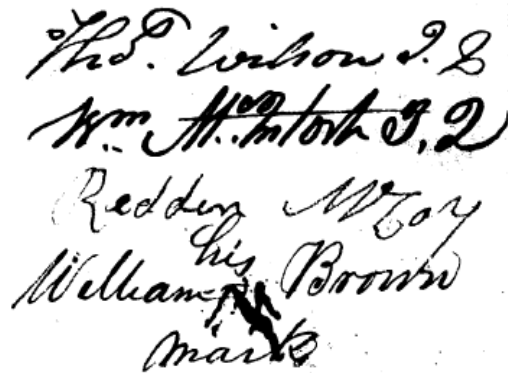 Thos. Wilson J. Q
Wm McIntosh J. Q
Redden McCoy
his
William X Brown
mark